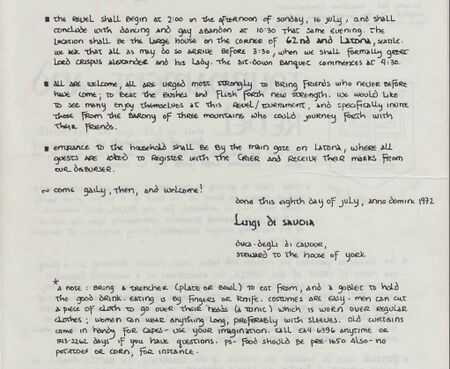 ▪ the Revel shall begin at 2:00 in the afternoon of sunday, 16 july, and shall
conclude with dancing and gay abandon at 10:30 that same evening. The
location shall be the large house on the corner of 62nd and Latona, seattle.
we ask that all as may do so arrive before 3:30, when we shall formally greet
Lord crispus alexander and his Lady. The sit-down Banquet commences at 4:30.
▪ all are welcome; all are urged most strongly to bring friends who never before
have come; to beat the bushes and flush forth new strength. We would like
to see many enjoy themselves at this revel/tournament, and specifically invite
those from the Barony of three mountains who could journey forth with
their friends.
▪ entrance to the household shall be by the main gate on Latona, where all
guests are asked to Register with the Crier and receive their marks from
our disburser.
~ come gaily, then, and welcome!
done this eighth day of july, anno domini 1972
Luigi di SAVOIA
duca-degli di cavour,
steward to the house of york
* a note: bring a trencher (plate or bowl) to eat from, and a goblet to hold
the good drink. eating is by fingers or knife. costumes are easy- men can cut
a piece of cloth to go over their heads (a tunic) which is worn over regular
clothes; women can wear anything long, preferably with sleeves. old curtains
come in handy for capes- use your imagination. call EA4-6396 anytime or
543-2262 days if you have questions. ps- food should be pre-1650 also- no
potatoes or corn, for instance.